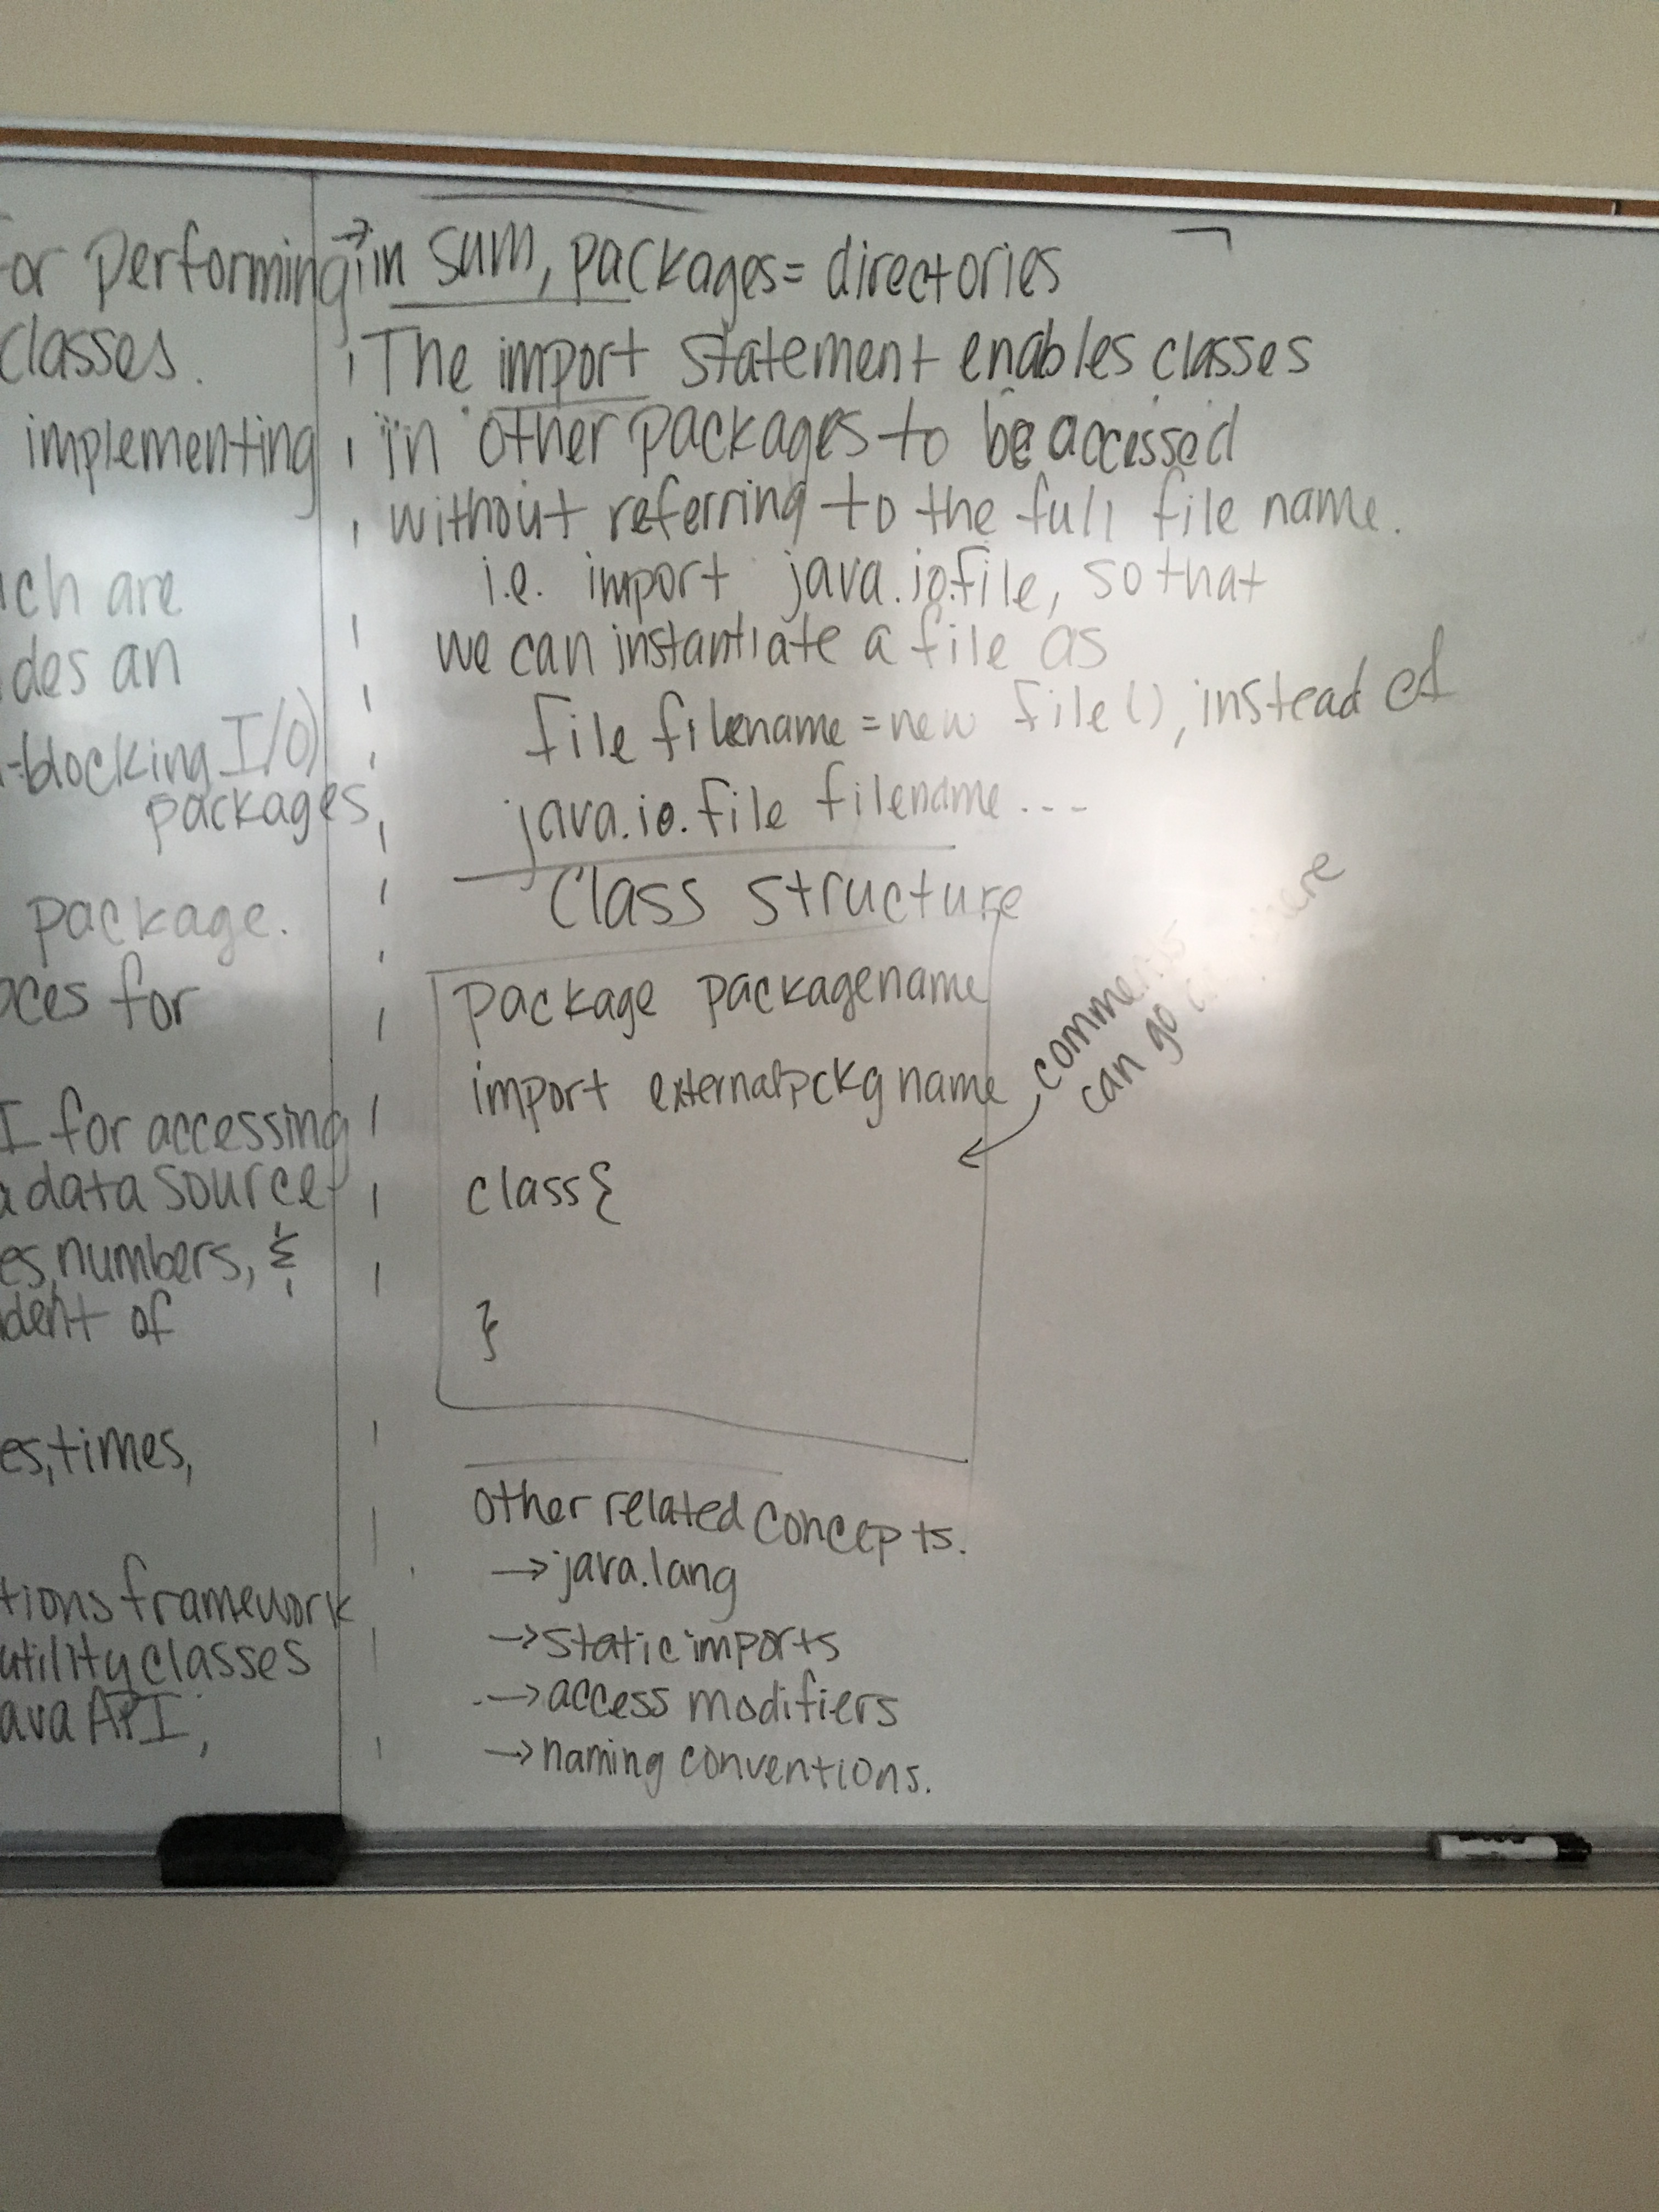 for performing
classes.
implementing
ch are
des an
-blocking I/O)
packages
package.
for
I for accessing
a data source
es, numbers, &
dent of
es, times,
tions framework
utility classes
ava API,
→ in sum, packages = directories
The import statement enables classes
in other packages to be accessed
without referring to the full file name.
i.e. import java.io.file, so that
we can instantiate a file as
file filename = new file(), instead of
java.io.file filename ...
Class structure
package packagename
import externalpckgname
class{
}
comments
can go anywhere
other related concepts.
→ java.lang
→ static imports
→ access modifiers
→ naming conventions.